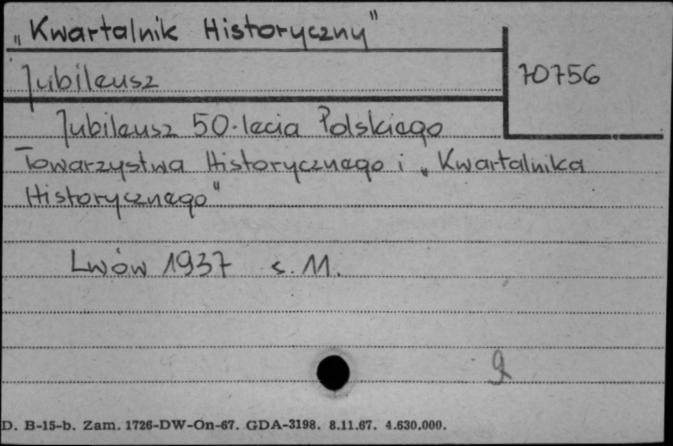 „Kwartalnik Historyczny”
Jubileusz
70756
Jubileusz 50-lecia Polskiego
Towarzystwa Historycznego i „Kwartalnika
Historycznego”
Lwów 1937 s. 11.
D. B-15-b. Zam. 1726-DW-On-67. GDA-3198. 8.11.67. 4.630.000.